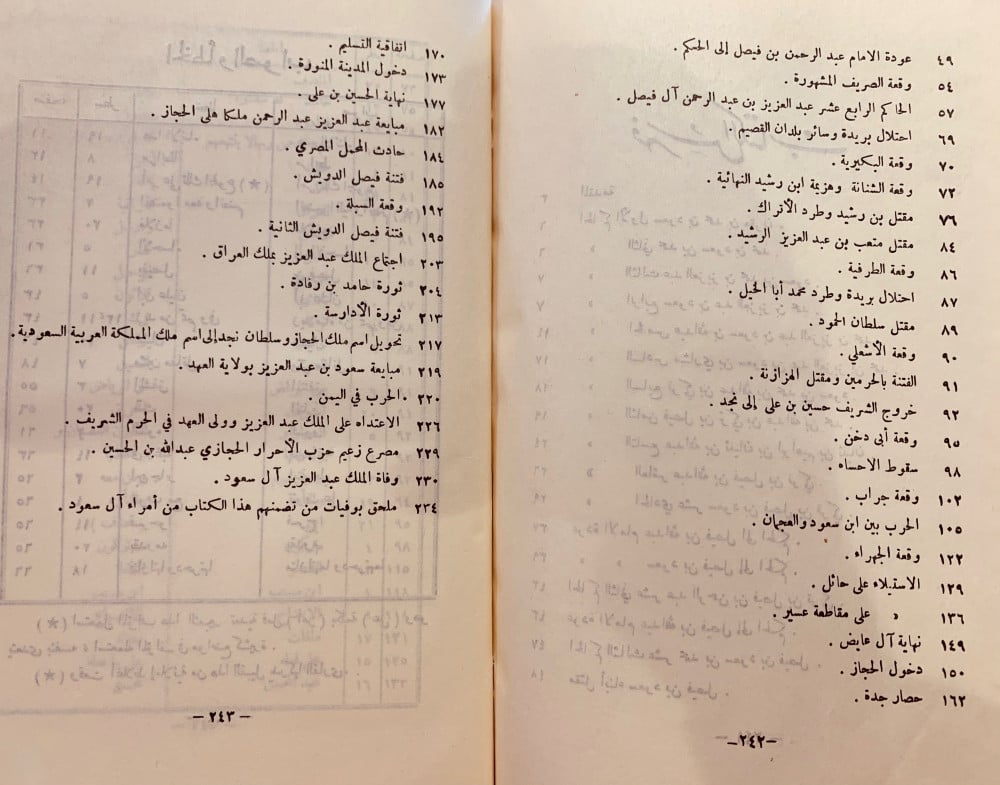 ٤٩ عودة الامام عبد الرحمن بن فيصل إلى الحكم .
٥٤ وقعة الصريف المشهورة .
٥٧ الحاكم الرابع عشر عبد العزيز بن عبد الرحمن آل فيصل .
٦٩ احتلال بريدة وسائر بلدان القصيم .
٧٠ وقعة البكيرية .
٧٢ وقعة الشنانة وهزيمة ابن رشيد النهائية .
٧٦ مقتل بن رشيد وطرد الأتراك .
٨٤ مقتل متعب بن عبد العزيز الرشيد .
٨٦ وقعة الطرفية .
٨٧ احتلال بريدة وطرد محمد أبا الخيل .
٨٩ مقتل سلطان الحمود .
٩٠ وقعة الأشعلي .
٩١ الفتنة بالحرمين ومقتل الهزازنة .
٩٢ خروج الشريف حسين بن على إلى نجد .
٩٥ وقعة أبى دخن .
٩٨ سقوط الاحساء .
١٠٢ وقعة جراب .
١٠٥ الحرب بين ابن سعود والعجمان .
١٢٢ وقعة الجهراء .
١٢٩ الاستيلاء على حائل .
١٣٦ » على مقاطعة عسير .
١٤٩ نهاية آل عايض .
١٥٠ دخول الحجاز .
١٦٢ حصار جدة .
—٢٤٢—
١٧٠ اتفاقية التسليم .
١٧٣ دخول المدينة المنورة .
١٧٧ نهاية الحسين بن على .
١٨٢ مبايعة عبد العزيز عبد الرحمن ملكا هلى الحجاز .
١٨٤ حادث المحمل المصري .
١٨٥ فتنة فيصل الدويش .
١٩٢ وقعة السبلة .
١٩٥ فتنة فيصل الدويش الثانية .
٢٠٣ اجتماع الملك عبد العزيز بملك العراق .
٢٠٤ ثورة حامد بن رفادة .
٢١٣ ثورة الأدارسة .
٢١٧ تحويل اسم ملك الحجاز وسلطان نجد إلى اسم ملك المملكة العربية السعودية .
٢١٩ مبايعة سعود بن عبد العزيز بولاية العهد .
٢٢٠ الحرب في اليمن .
٢٢٦ الاعتداء على الملك عبد العزيز وولى العهد في الحرم الشريف .
٢٢٩ مصرع زعيم حزب الأحرار الحجازي عبدالله بن الحسين .
٢٣٠ وفاة الملك عبد العزيز آل سعود .
٢٣٤ ملحق بوفيات من تضمنهم هذا الكتاب من أمراء آل سعود .
— ٢٤٣ —